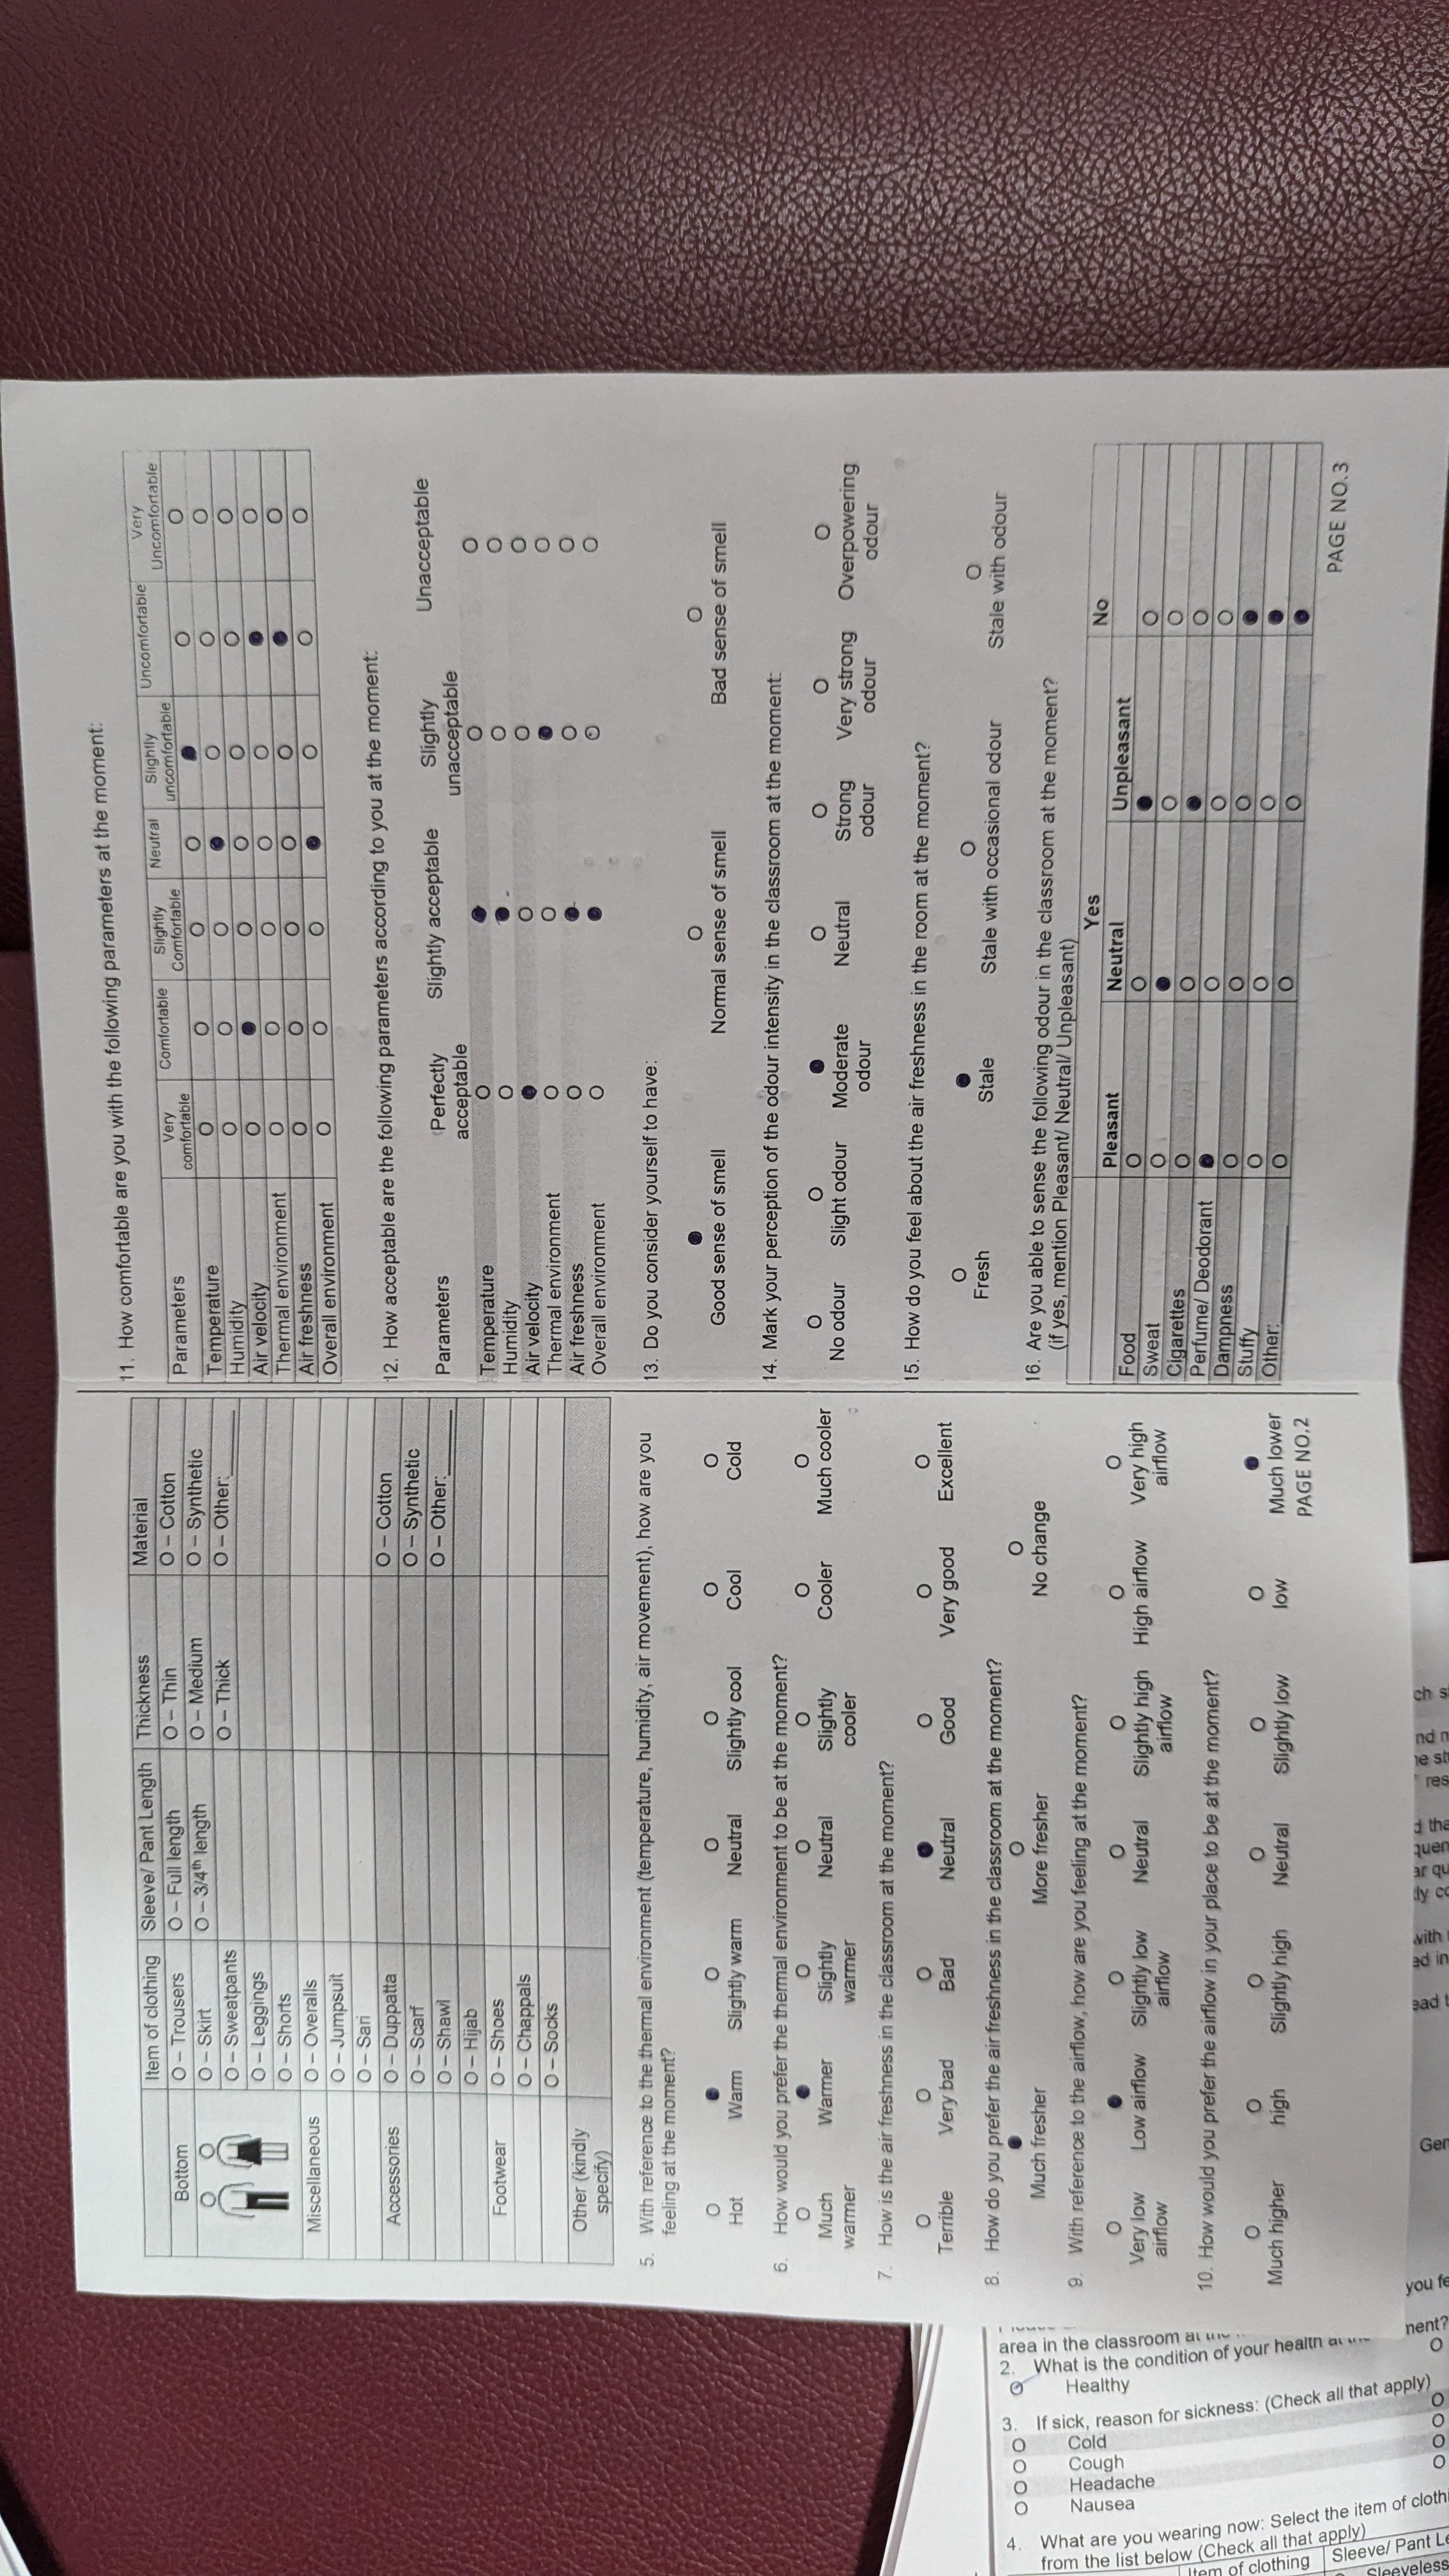 Item of clothing Sleeve/ Pant Length Thickness Material
Bottom O – Trousers O – Full length O – Thin O – Cotton
O – Skirt O – 3/4th length O – Medium O – Synthetic
O – Sweatpants O – Thick O – Other:______
O – Leggings
O – Shorts
Miscellaneous O – Overalls
O – Jumpsuit
O – Sari
Accessories O – Duppatta O – Cotton
O – Scarf O – Synthetic
O – Shawl O – Other:______
O – Hijab
Footwear O – Shoes
O – Chappals
O – Socks
Other (kindly
specify)
5. With reference to the thermal environment (temperature, humidity, air movement), how are you
feeling at the moment?
Hot Warm Slightly warm Neutral Slightly cool Cool Cold
6. How would you prefer the thermal environment to be at the moment?
Much Warmer Slightly Neutral Slightly Cooler Much cooler
warmer warmer cooler
7. How is the air freshness in the classroom at the moment?
Terrible Very bad Bad Neutral Good Very good Excellent
8. How do you prefer the air freshness in the classroom at the moment?
Much fresher More fresher No change
9. With reference to the airflow, how are you feeling at the moment?
Very low Low airflow Slightly low Neutral Slightly high High airflow Very high
airflow airflow airflow airflow
10. How would you prefer the airflow in your place to be at the moment?
Much higher high Slightly high Neutral Slightly low low Much lower
PAGE NO.2
11. How comfortable are you with the following parameters at the moment:
Parameters Very comfortable Comfortable Slightly Comfortable Neutral Slightly uncomfortable Uncomfortable Very Uncomfortable
Temperature
Humidity
Air velocity
Thermal environment
Air freshness
Overall environment
12. How acceptable are the following parameters according to you at the moment:
Parameters Perfectly acceptable Slightly acceptable Slightly unacceptable Unacceptable
Temperature
Humidity
Air velocity
Thermal environment
Air freshness
Overall environment
13. Do you consider yourself to have:
Good sense of smell Normal sense of smell Bad sense of smell
14. Mark your perception of the odour intensity in the classroom at the moment:
No odour Slight odour Moderate Neutral Strong Very strong Overpowering
odour odour odour odour
15. How do you feel about the air freshness in the room at the moment?
Fresh Stale Stale with occasional odour Stale with odour
16. Are you able to sense the following odour in the classroom at the moment?
(if yes, mention Pleasant/ Neutral/ Unpleasant)
Yes No
Pleasant Neutral Unpleasant
Food
Sweat
Cigarettes
Perfume/ Deodorant
Dampness
Stuffy
Other:
PAGE NO.3
area in the classroom
2. What is the condition of your health
Healthy
3. If sick, reason for sickness: (Check all that apply)
Cold
Cough
Headache
Nausea
4. What are you wearing now: Select the item of
from the list below (Check all that apply)
Item of clothing Sleeve/ Pant